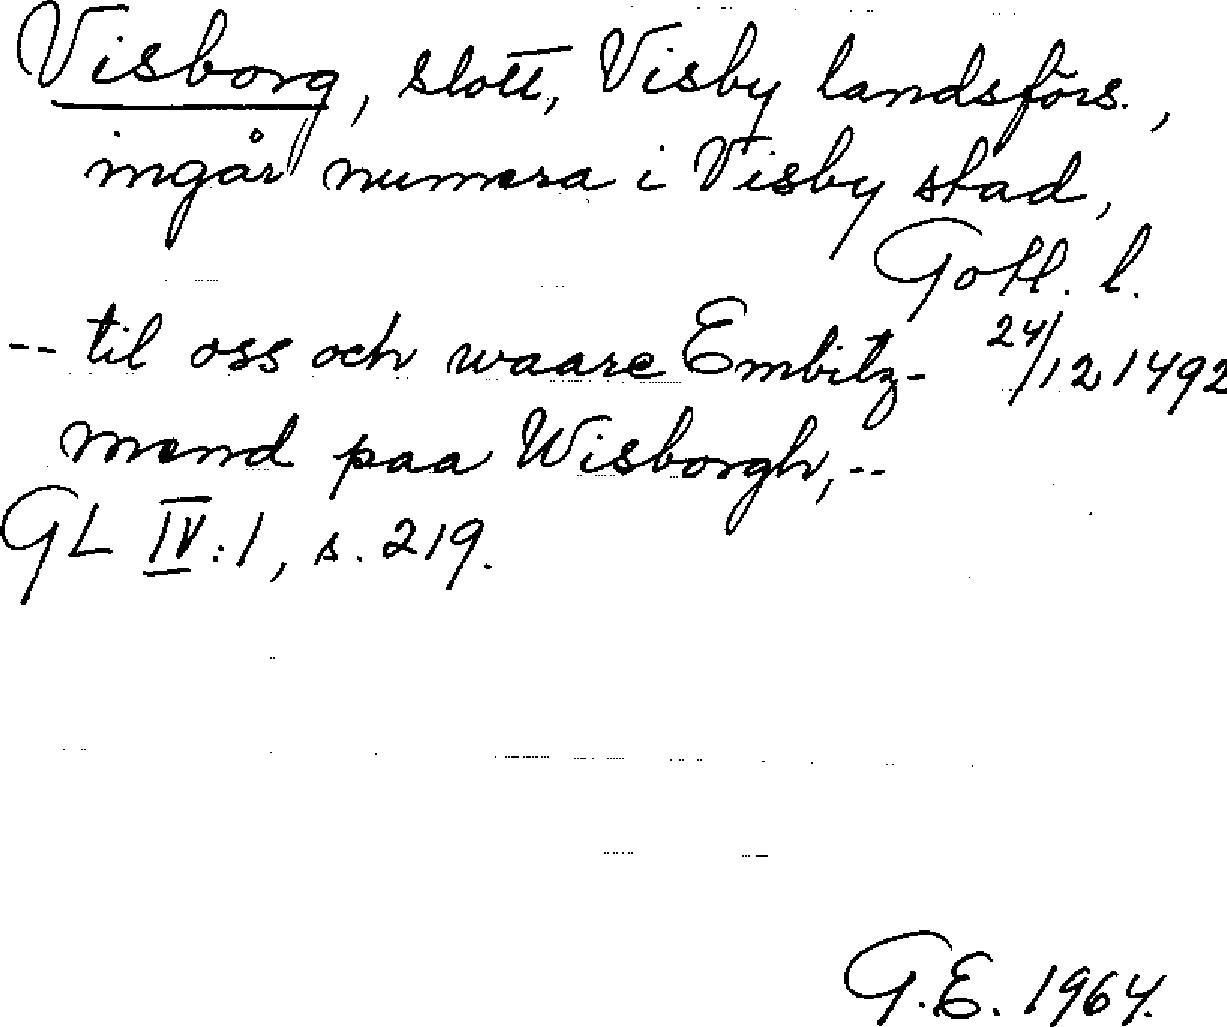 Visborg, slott, Visby landsförs.,
ingår numera i Visby stad,
Gotl. l.
-- til oss och waare Embitz- 24/12 1492
mend paa Wisborgh, --
GL IV:1, s. 219.
G.E. 1964.